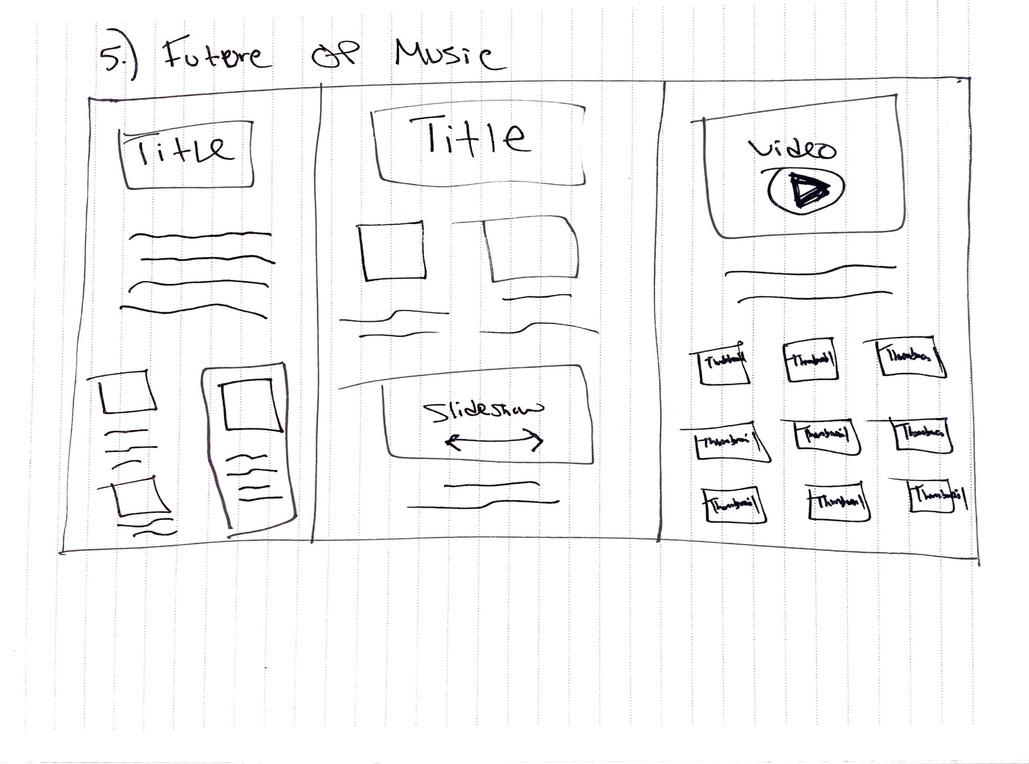 5.) Future of Music
Title
Title
Video
Slideshow
Thumbnail Thumbnail Thumbnail
Thumbnail Thumbnail Thumbnail
Thumbnail Thumbnail Thumbnail